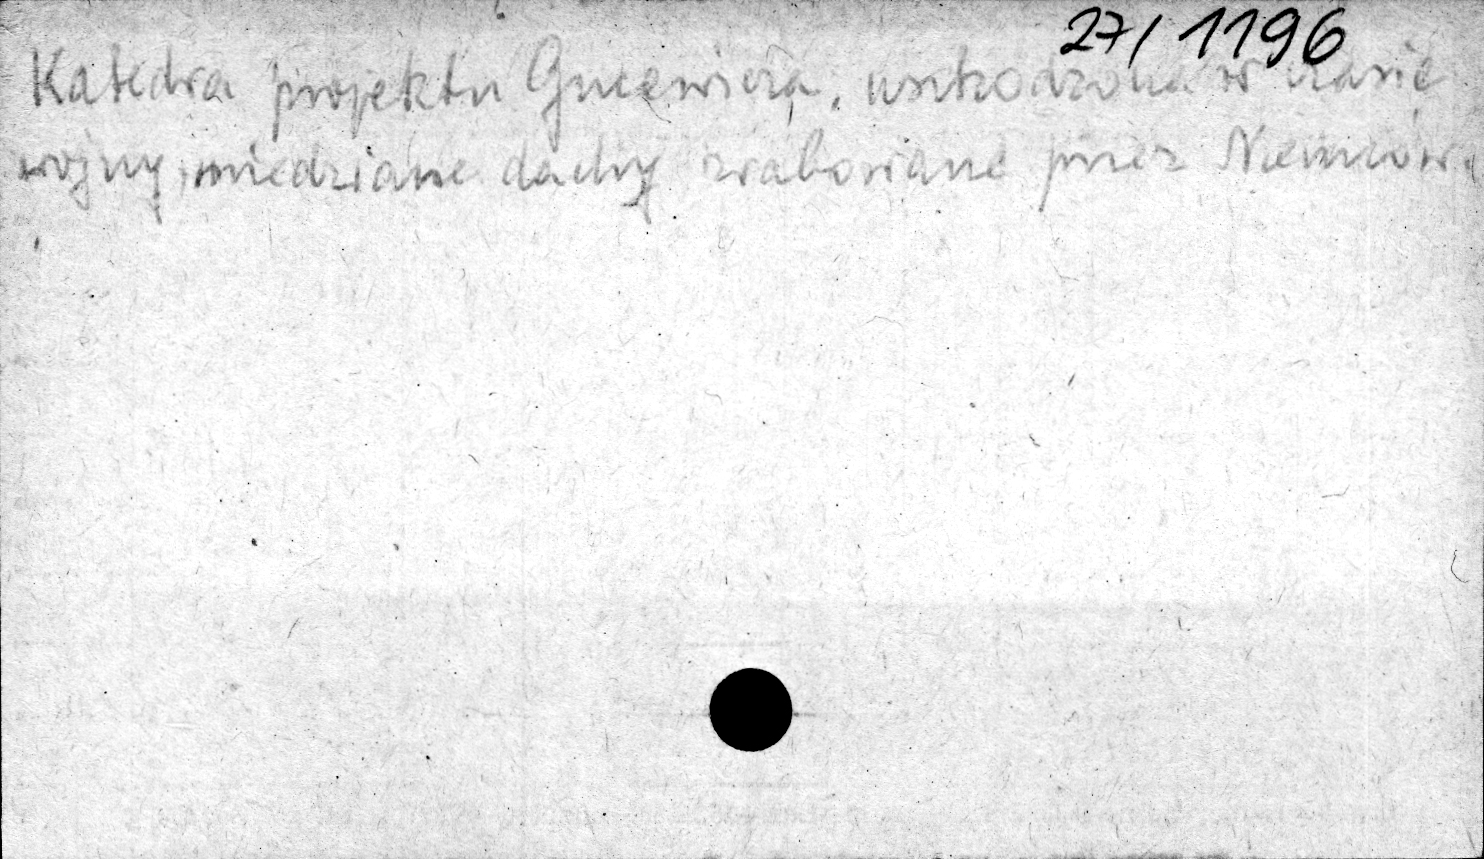 27/1196
Katedra projektu Gucewicza, uszkodzona w czasie
wojny, miedziane dachy zrabowane przez Niemców.